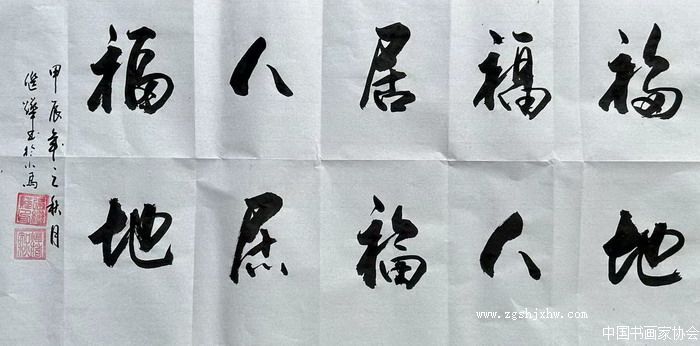 福地
福人
居福
人居
福地
甲辰年之秋月
书於小
www.zgshjxhw.com
中国书画家协会